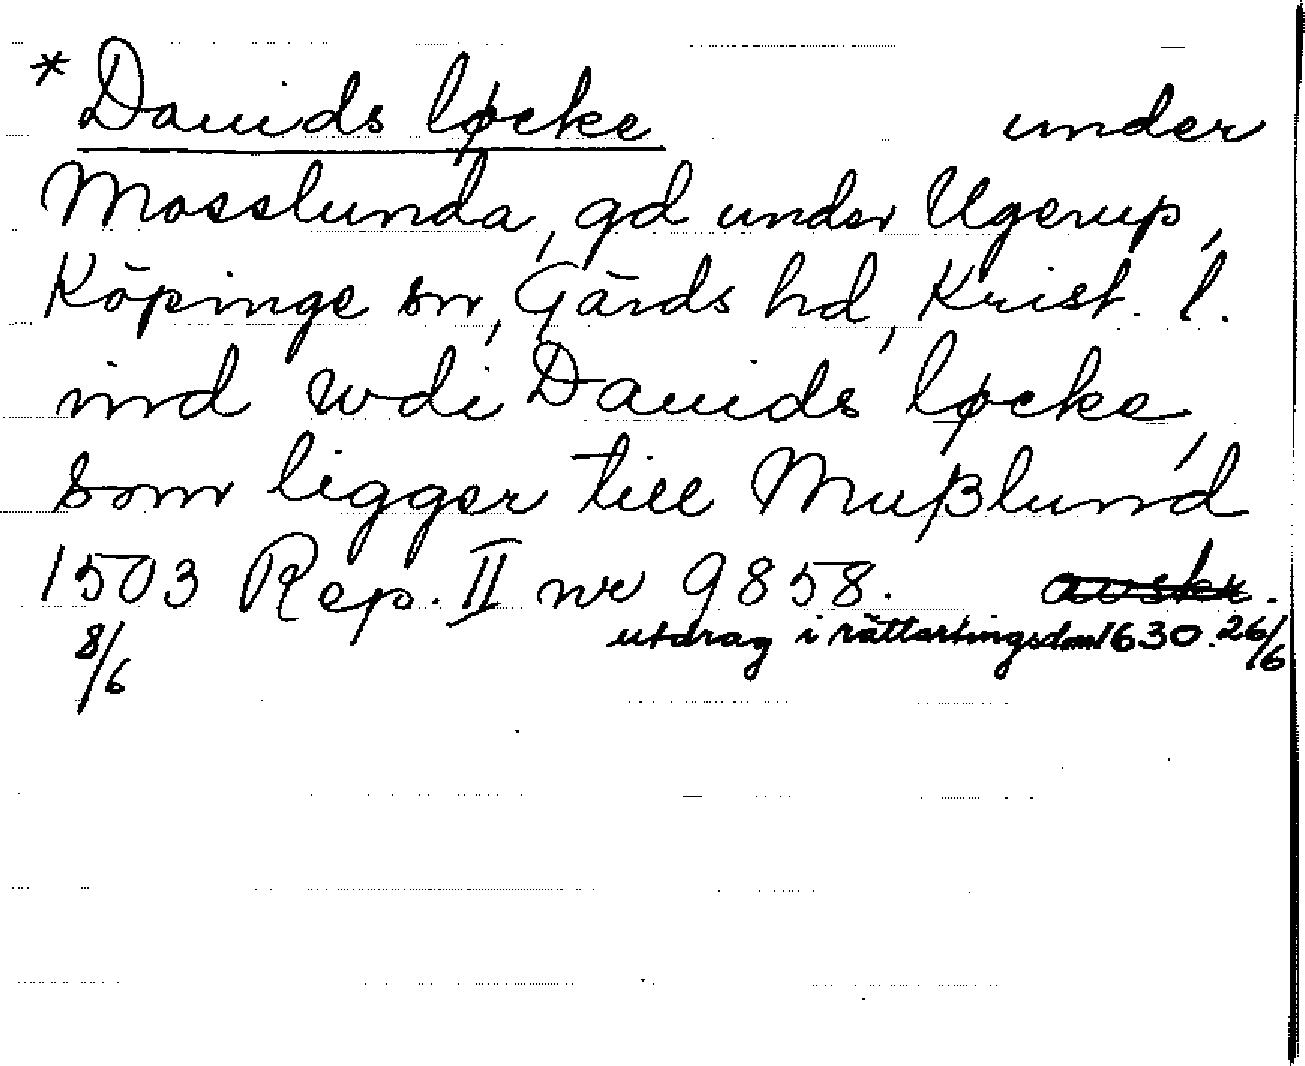 * Dauids løcke under
Mosslunda, gd under Ugerup,
Köpinge sn, Gärds hd, Krist. l.
ind wdi Dauids løcke,
som ligger till Mußlund
1503 Rep. II nr 9858. avskr.
8/6 utdrag i rättartingsdom 1630. 26/6